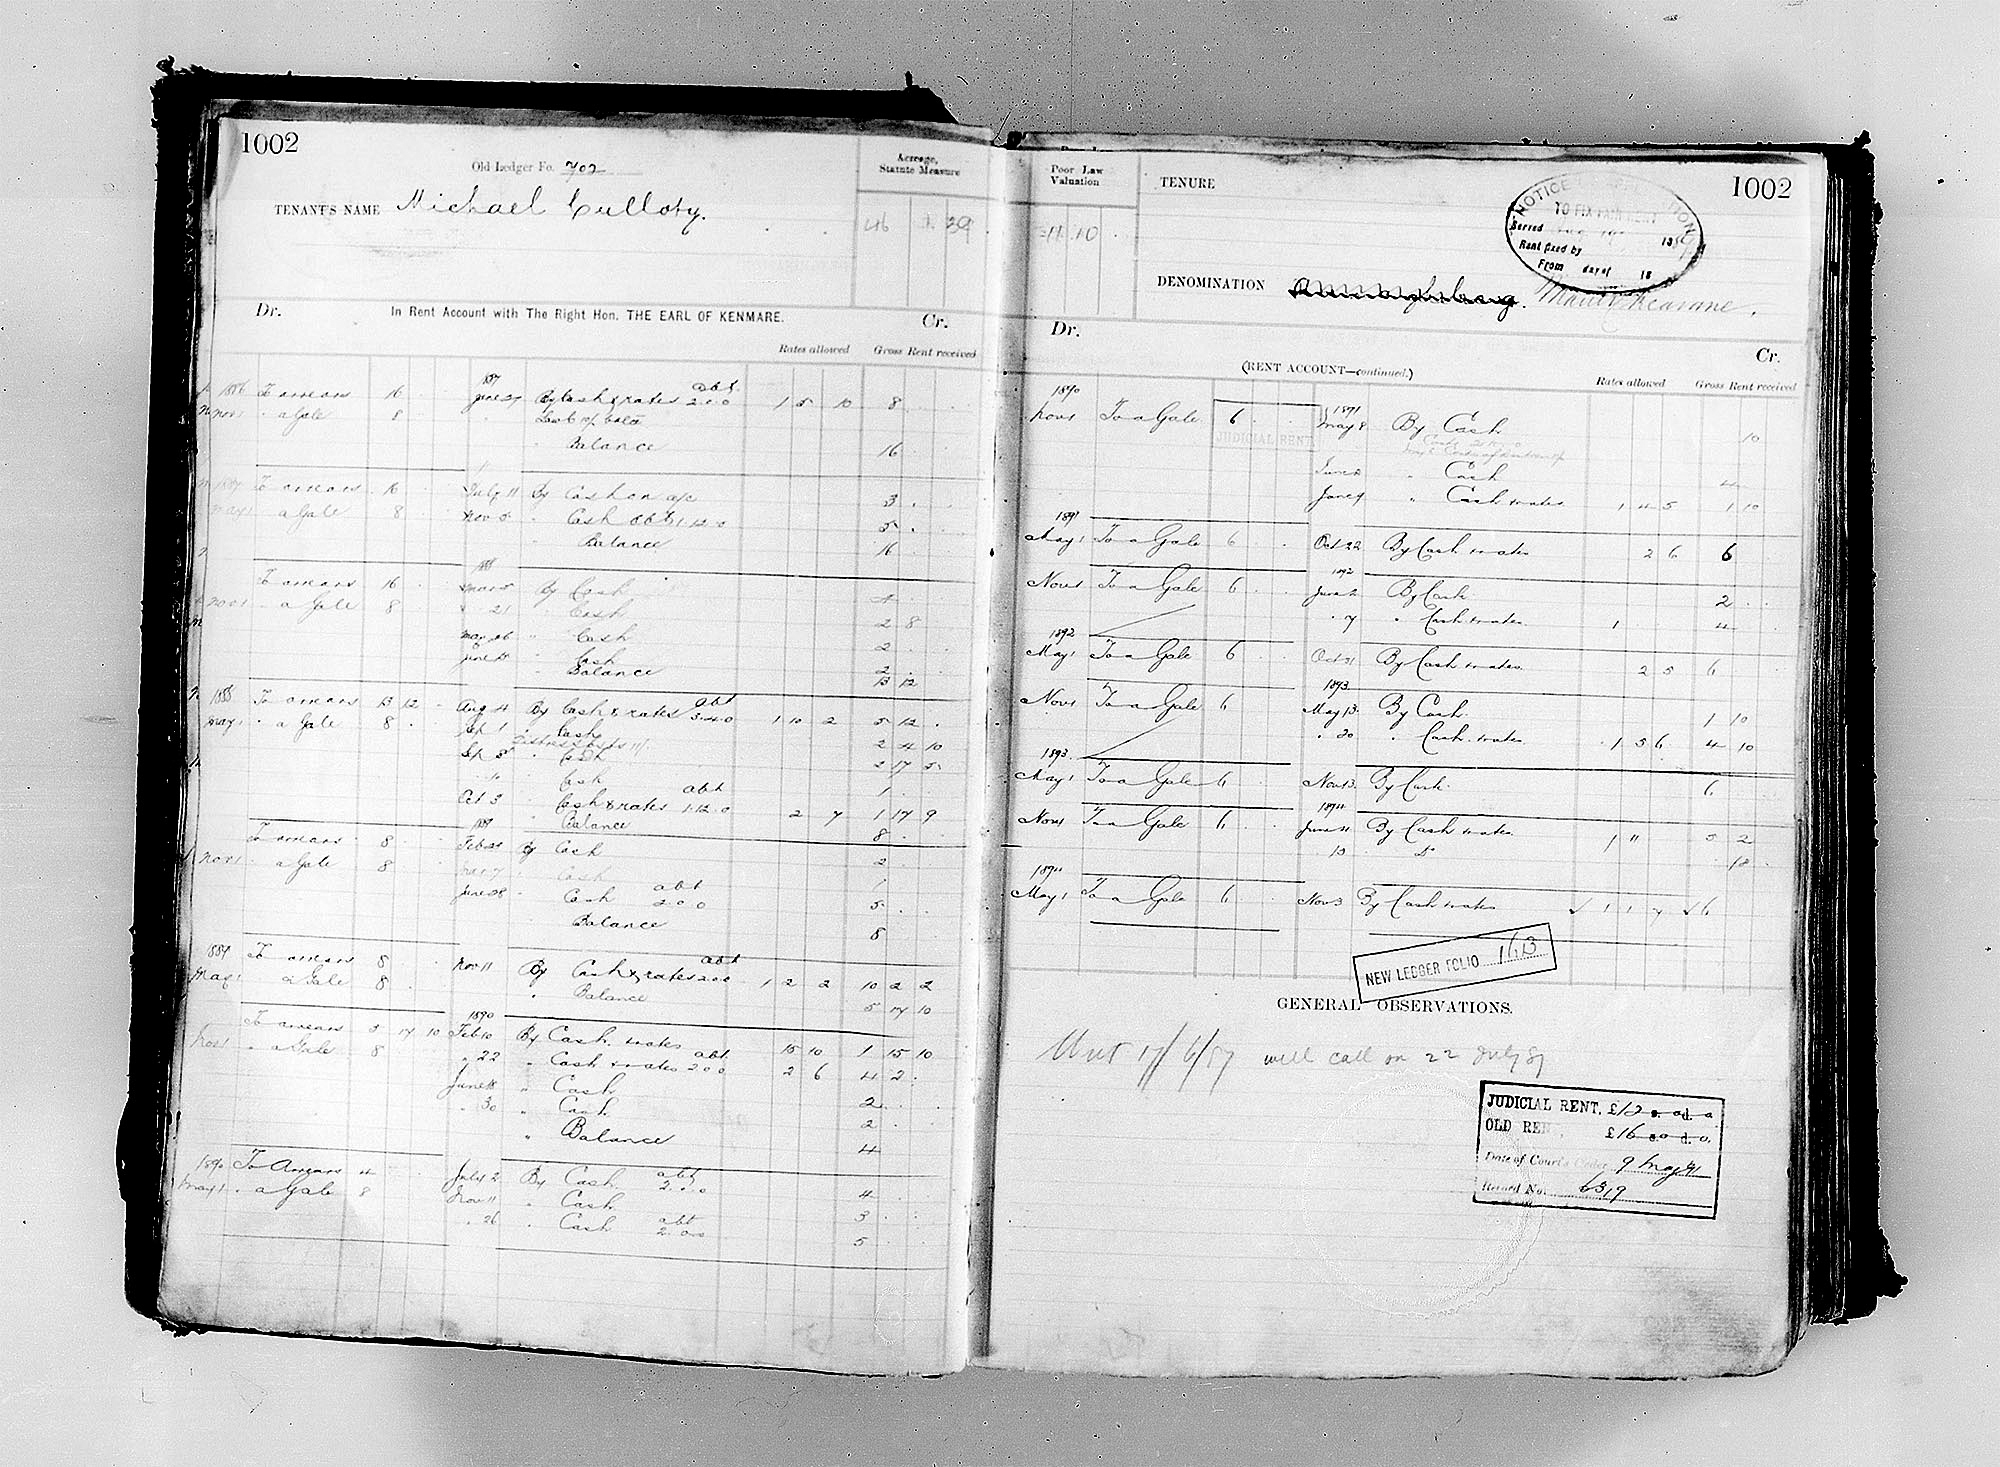 1002
Old Ledger Fo. 702
Acreage, Statute Measure
TENANT'S NAME Michael Culloty.
46 39
Dr. In Rent Account with The Right Hon. THE EARL OF KENMARE. Cr.
Rates allowed Gross Rent received
1886 To arrears 16 1887 June 27 By Cash & rates abt. 2.0.0 1 5 10 8
Nov 1 " a Gale 8
Balance 16
1887 To arrears 16 July 11 By Cash on a/c 3
May 1 a Gale 8 Nov 5 " Cash abt 1.12.0 5
Balance 16
To arrears 16 1888 Mar 5 By Cash
Nov 1 " a Gale 8 " 21 " Cash 2 8
May 26 " Cash 2
June " Cash 2
Balance 13 12
1888 To arrears 13 12 Aug 4 By Cash & rates abt 3.4.0 1 10 2 5 12
May 1 " a Gale 8 Sep 1 " Cash 2 4 10
Sep 8 " Cash 2 17 5
" Cash 1
Oct 3 " Cash & rates abt 1.12.0 2 7 1 17 9
Balance 8
To arrears 8 1889 Feb By Cash 2
Nov 1 " a Gale 8 Cash 1
June 28 Cash abt 2 0 0 5
Balance 8
1889 To arrears 8 Nov 11 By Cash & rates abt 2.0.0 1 2 2 10 2 2
May 1 a Gale 8 " Balance 5 17 10
To arrears 5 17 10 1890 Feb 10 By Cash & rates 15 10 1 15 10
Nov 1 " a Gale 8 " 22 " Cash & rates abt 2 0 0 2 6 4 2
June " Cash 2
" 30 " Cash 2
" Balance 4
1890 To Arrears 4 July 2 By Cash abt 2.0.0 4
May 1 " a Gale 8 Nov 11 " Cash 3
" 26 " Cash abt 2.0.0 5
Poor Law Valuation
TENURE
1002
11 10
NOTICE
TO FIX FAIR RENT
Served 18
Rent fixed by
From day of 18
DENOMINATION
Dr. Cr.
(RENT ACCOUNT—continued.)
Rates allowed Gross Rent received
1890
Nov 1 To a Gale 6 1891 May 8 By Cash 10
JUDICIAL RENT
June " Cash 4
June 9 " Cash & rates 1 4 5 1 10
1891
May 1 To a Gale 6 Oct 22 By Cash & rates 2 6 6
Nov 1 To a Gale 6 1892 June 2 By Cash 2
" 7 " Cash & rates 1 4
1892
May 1 To a Gale 6 Oct 31 By Cash & rates 2 5 6
Nov 1 To a Gale 6 1893 May 13 By Cash 1 10
" 20 " Cash & rates 1 5 6 4 10
1893
May 1 To a Gale 6 Nov 13 By Cash 6
Nov 1 To a Gale 6 1894 June 11 By Cash & rates 1 " 5 2
18
1894
May 1 To a Gale 6 Nov 3 By Cash & rates 1 1 7 6
NEW LEDGER FOLIO 1613
GENERAL OBSERVATIONS.
Writ 17/6/87 will call on 22 July 87
JUDICIAL RENT, £12 s. 0 d. 0
OLD RENT, £16 s. 0 d. 0
Date of Court's Order 9 May 91
Record No. 6319